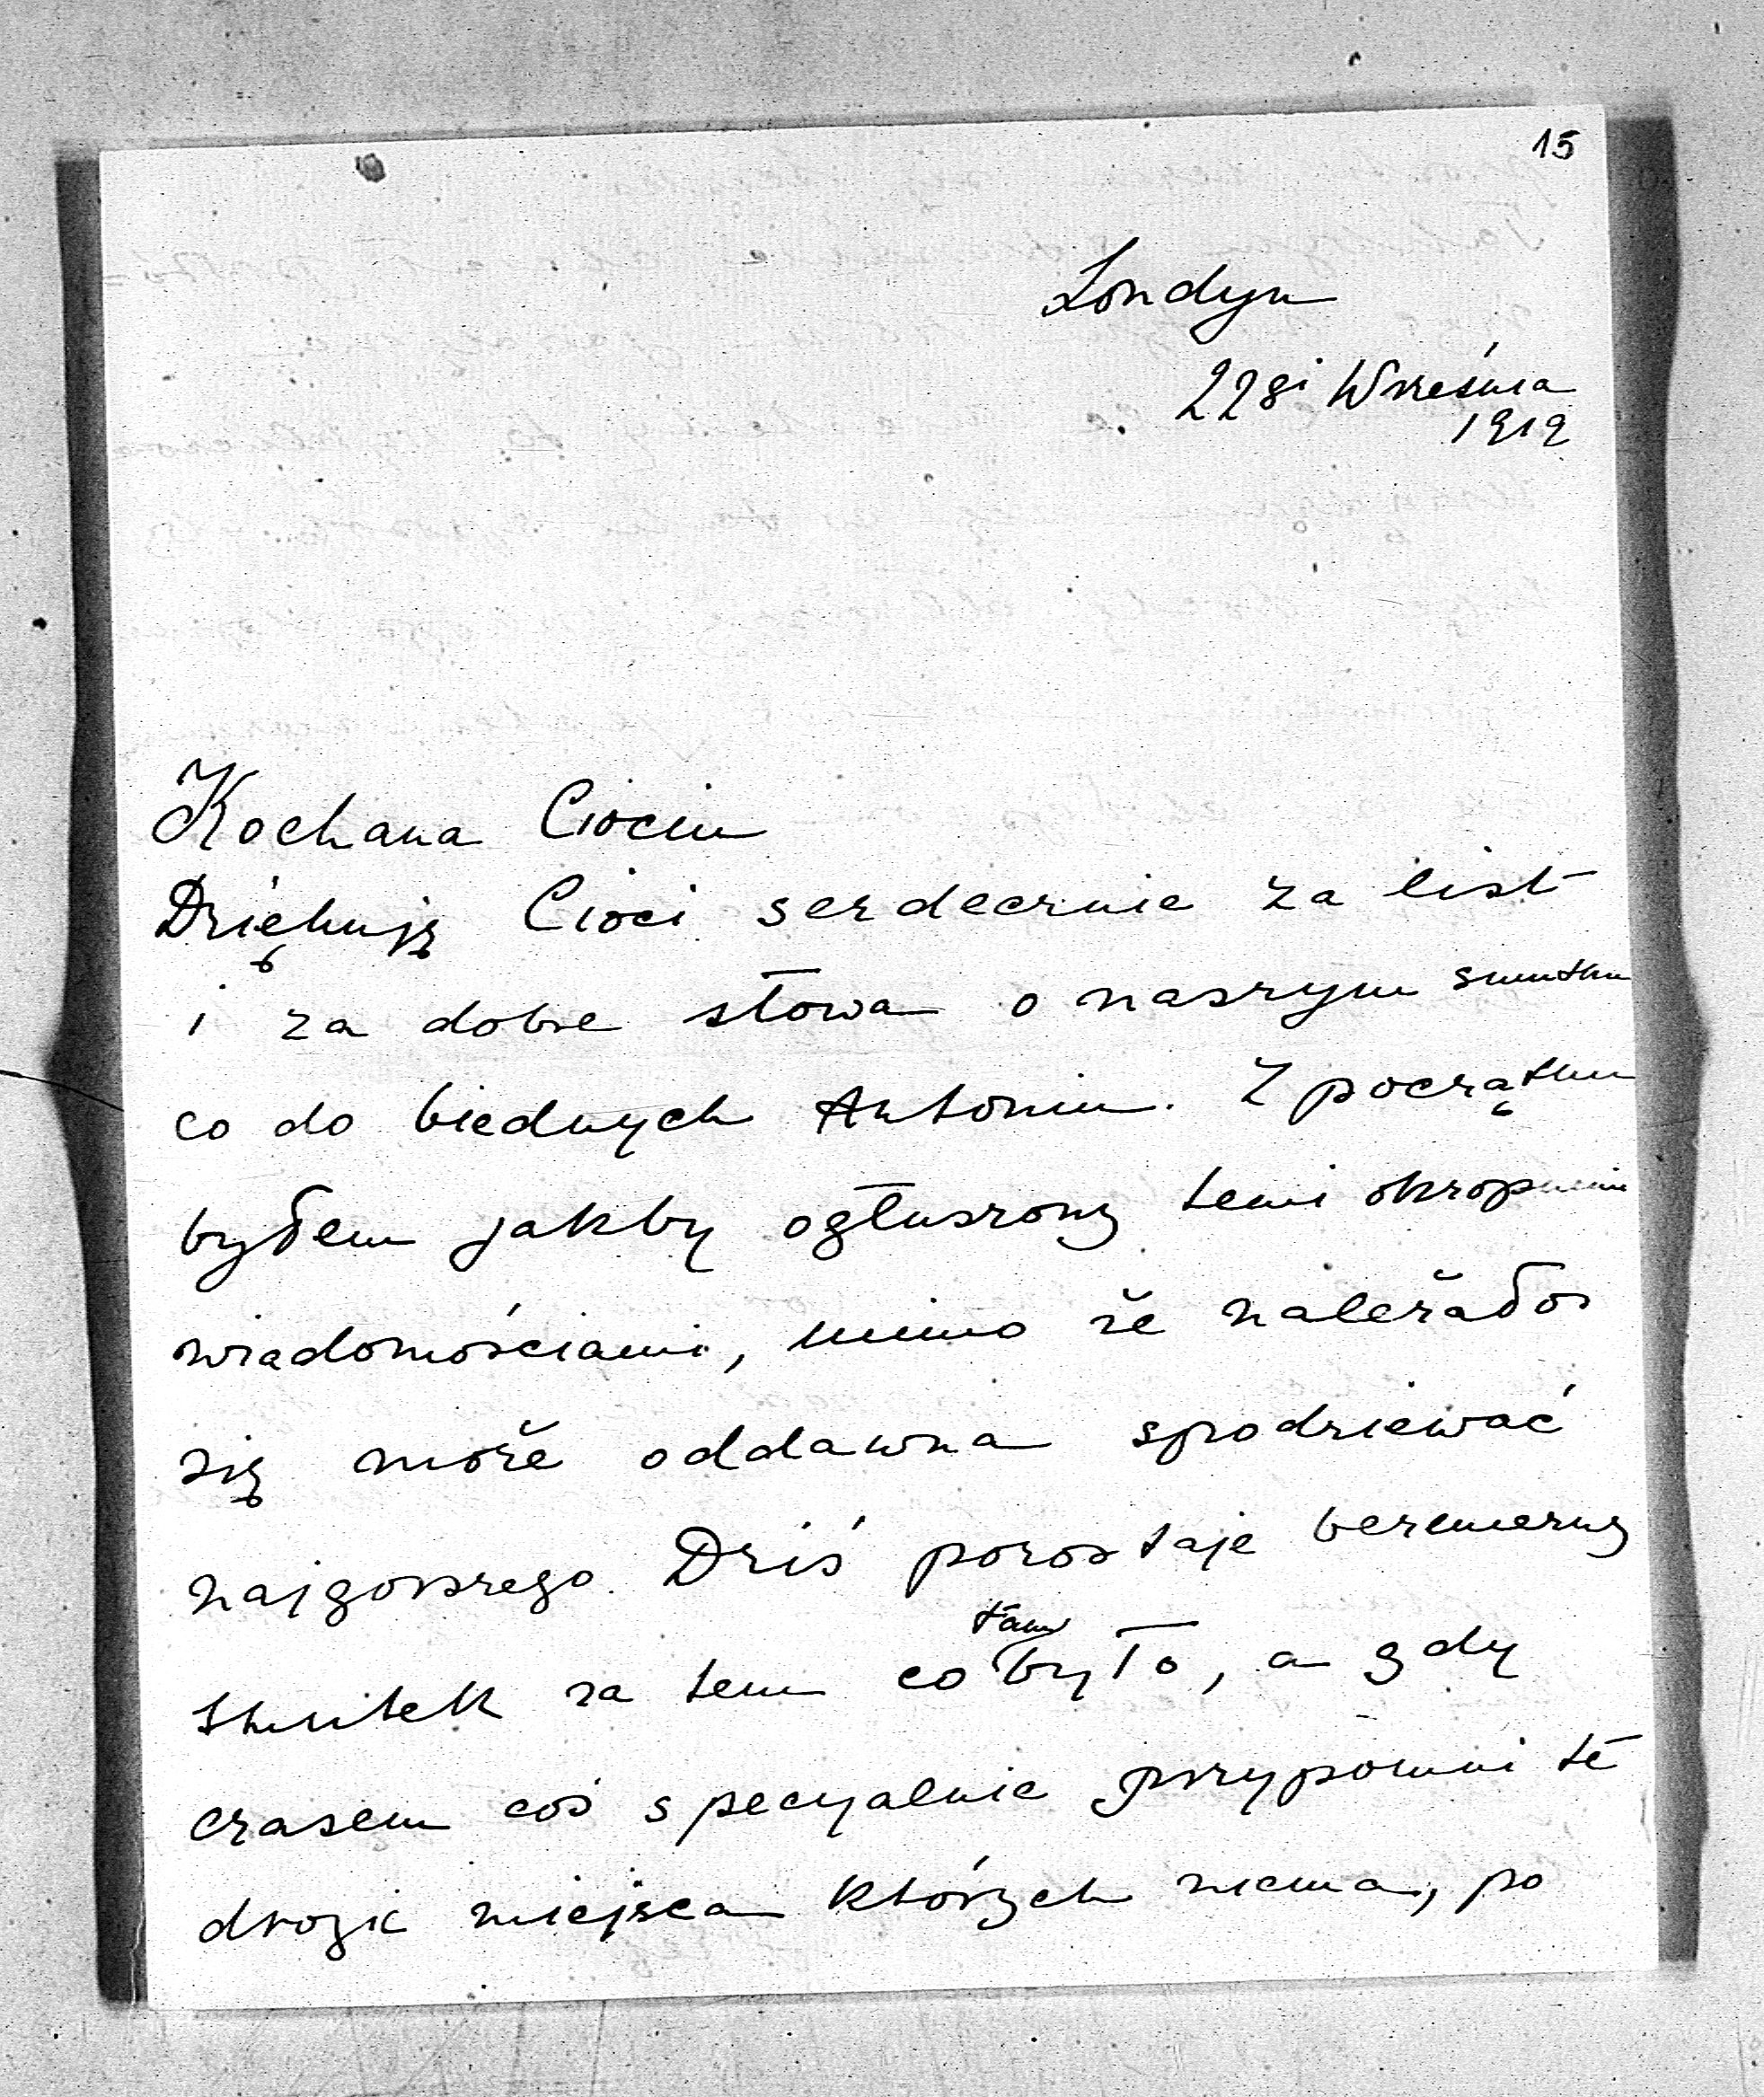 15
Londyn
22gi Września
1919
Kochana Ciociu
Dziękuję Cioci serdecznie za list
i za dobre słowa o naszym smutku
co do biednych Antonin. Z początku
byłem jakby ogłuszony temi okropnemi
wiadomościami, mimo że należało
się może oddawna spodziewać
najgorszego. Dziś pozostaje bezmierny
smutek za tem co tam było, a gdy
czasem coś specyalnie przypomni te
drogie miejsca których niema, po